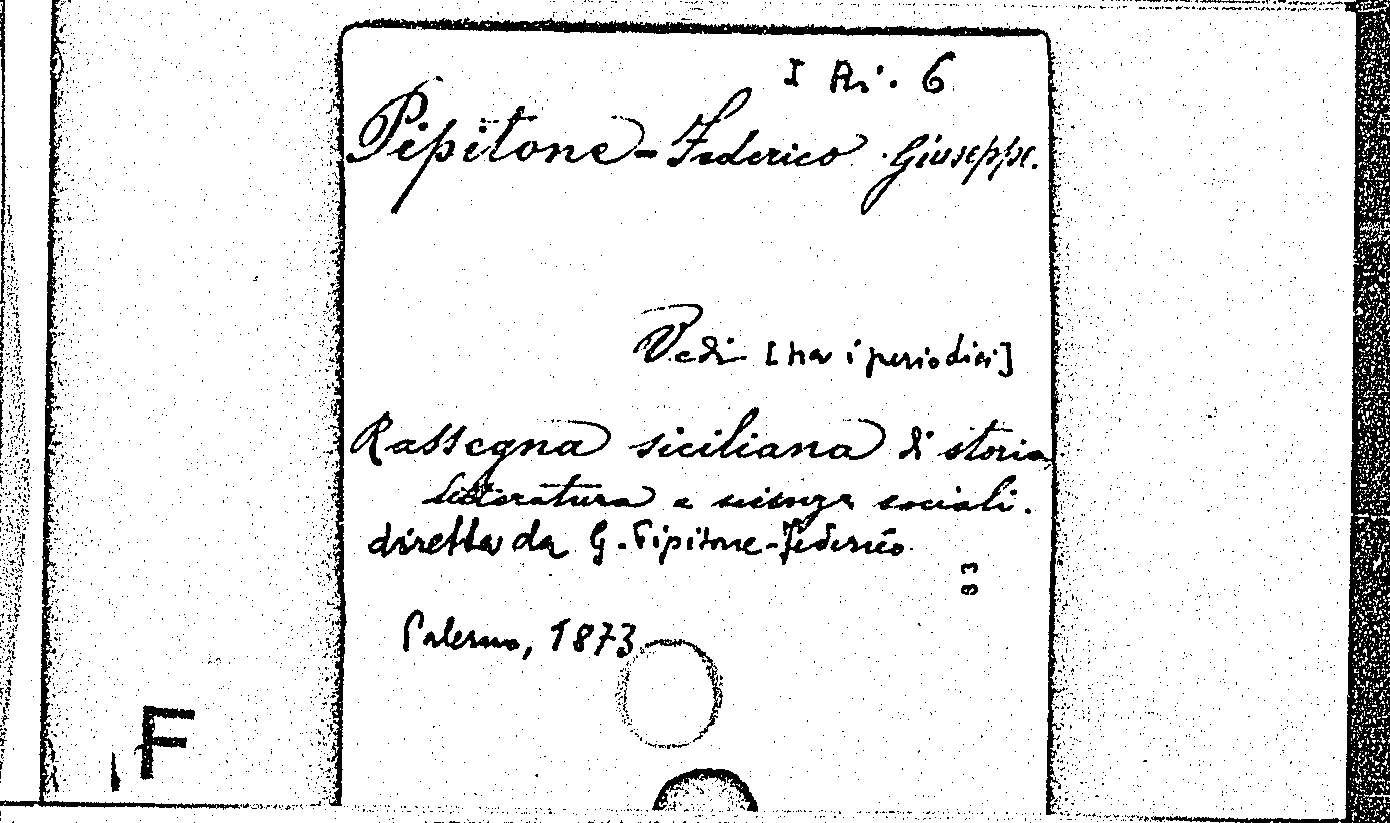 I Ri. 6
Pipitone-Federico Giuseppe.
Vedi [tra i periodici]
Rassegna siciliana di storia
letteratura e scienze sociali.
diretta da G. Pipitone-Federico
Palermo, 1873
F